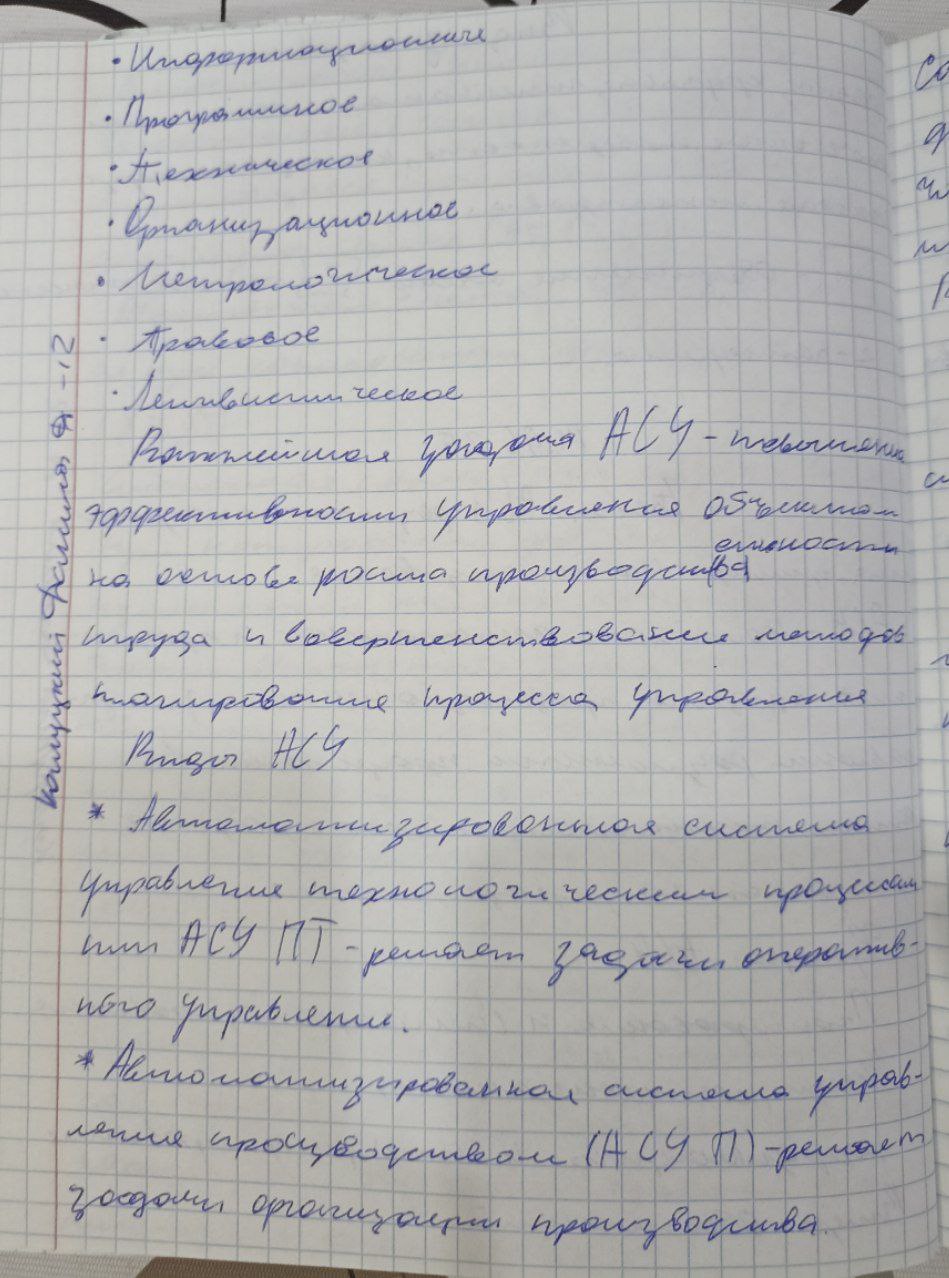 • Информационные
• Программное
• Техническое
• Организационное
• Метрологическое
• Правовое
• Лингвистическое
Важнейшая задача АСУ - повышение
эффективности управления объектом
на основе роста производительности
труда и совершенствование методов
планирование процесса управления
Виды АСУ
* Автоматизированная система
управление технологическим процессам
или АСУ ПТ - решает задачи оператив-
ного управление.
* Автоматизированная система управ-
ление производством (АСУ П) - решает
задачи организации производства.